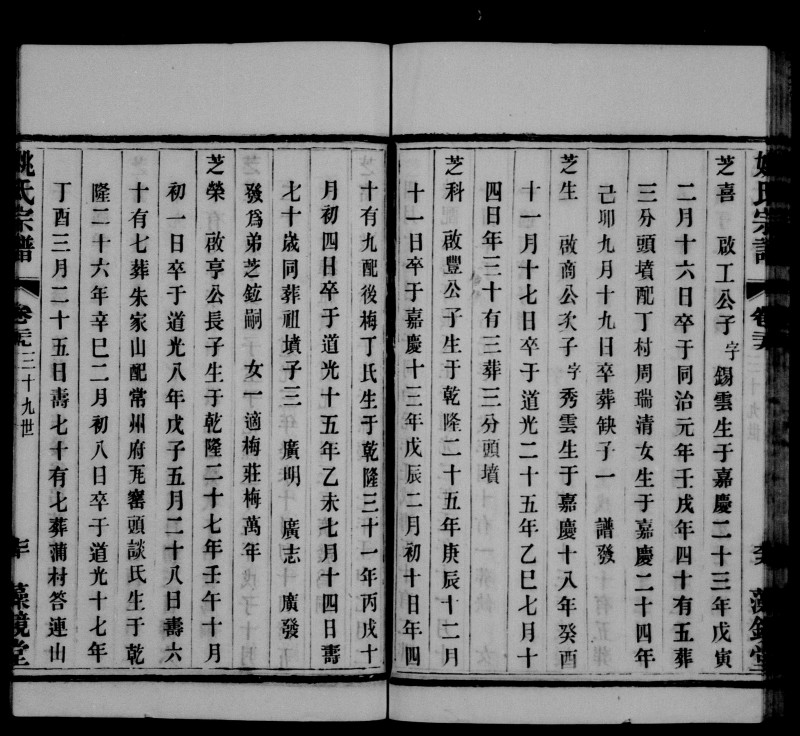 芝喜　啟工公子字錫雲生于嘉慶二十三年戊寅
二月十六日卒于同治元年壬戌年四十有五葬
三分頭墳配丁村周瑞清女生于嘉慶二十四年
己卯九月十九日卒葬缺子一　譜發
芝生　啟商公次子字秀雲生于嘉慶十八年癸酉
十一月十七日卒于道光二十五年乙巳七月十
四日年三十有三葬三分頭墳
芝科　啟豐公子生于乾隆二十五年庚辰十二月
十一日卒于嘉慶十三年戊辰二月初十日年四
姚氏宗譜　卷三十九世　藻鏡堂
十有九配後梅丁氏生于乾隆三十一年丙戌十
月初四日卒于道光十五年乙未七月十四日壽
七十歲同葬祖墳子三　廣明　廣志　廣發
發爲弟芝銓嗣　女一適梅莊梅萬年
芝榮　啟亨公長子生于乾隆二十七年壬午十月
初一日卒于道光八年戊子五月二十八日壽六
十有七葬朱家山配常州府瓦窰頭談氏生于乾
隆二十六年辛巳二月初八日卒于道光十七年
丁酉三月二十五日壽七十有七葬蒲村答連山
姚氏宗譜　三十九世　藻鏡堂